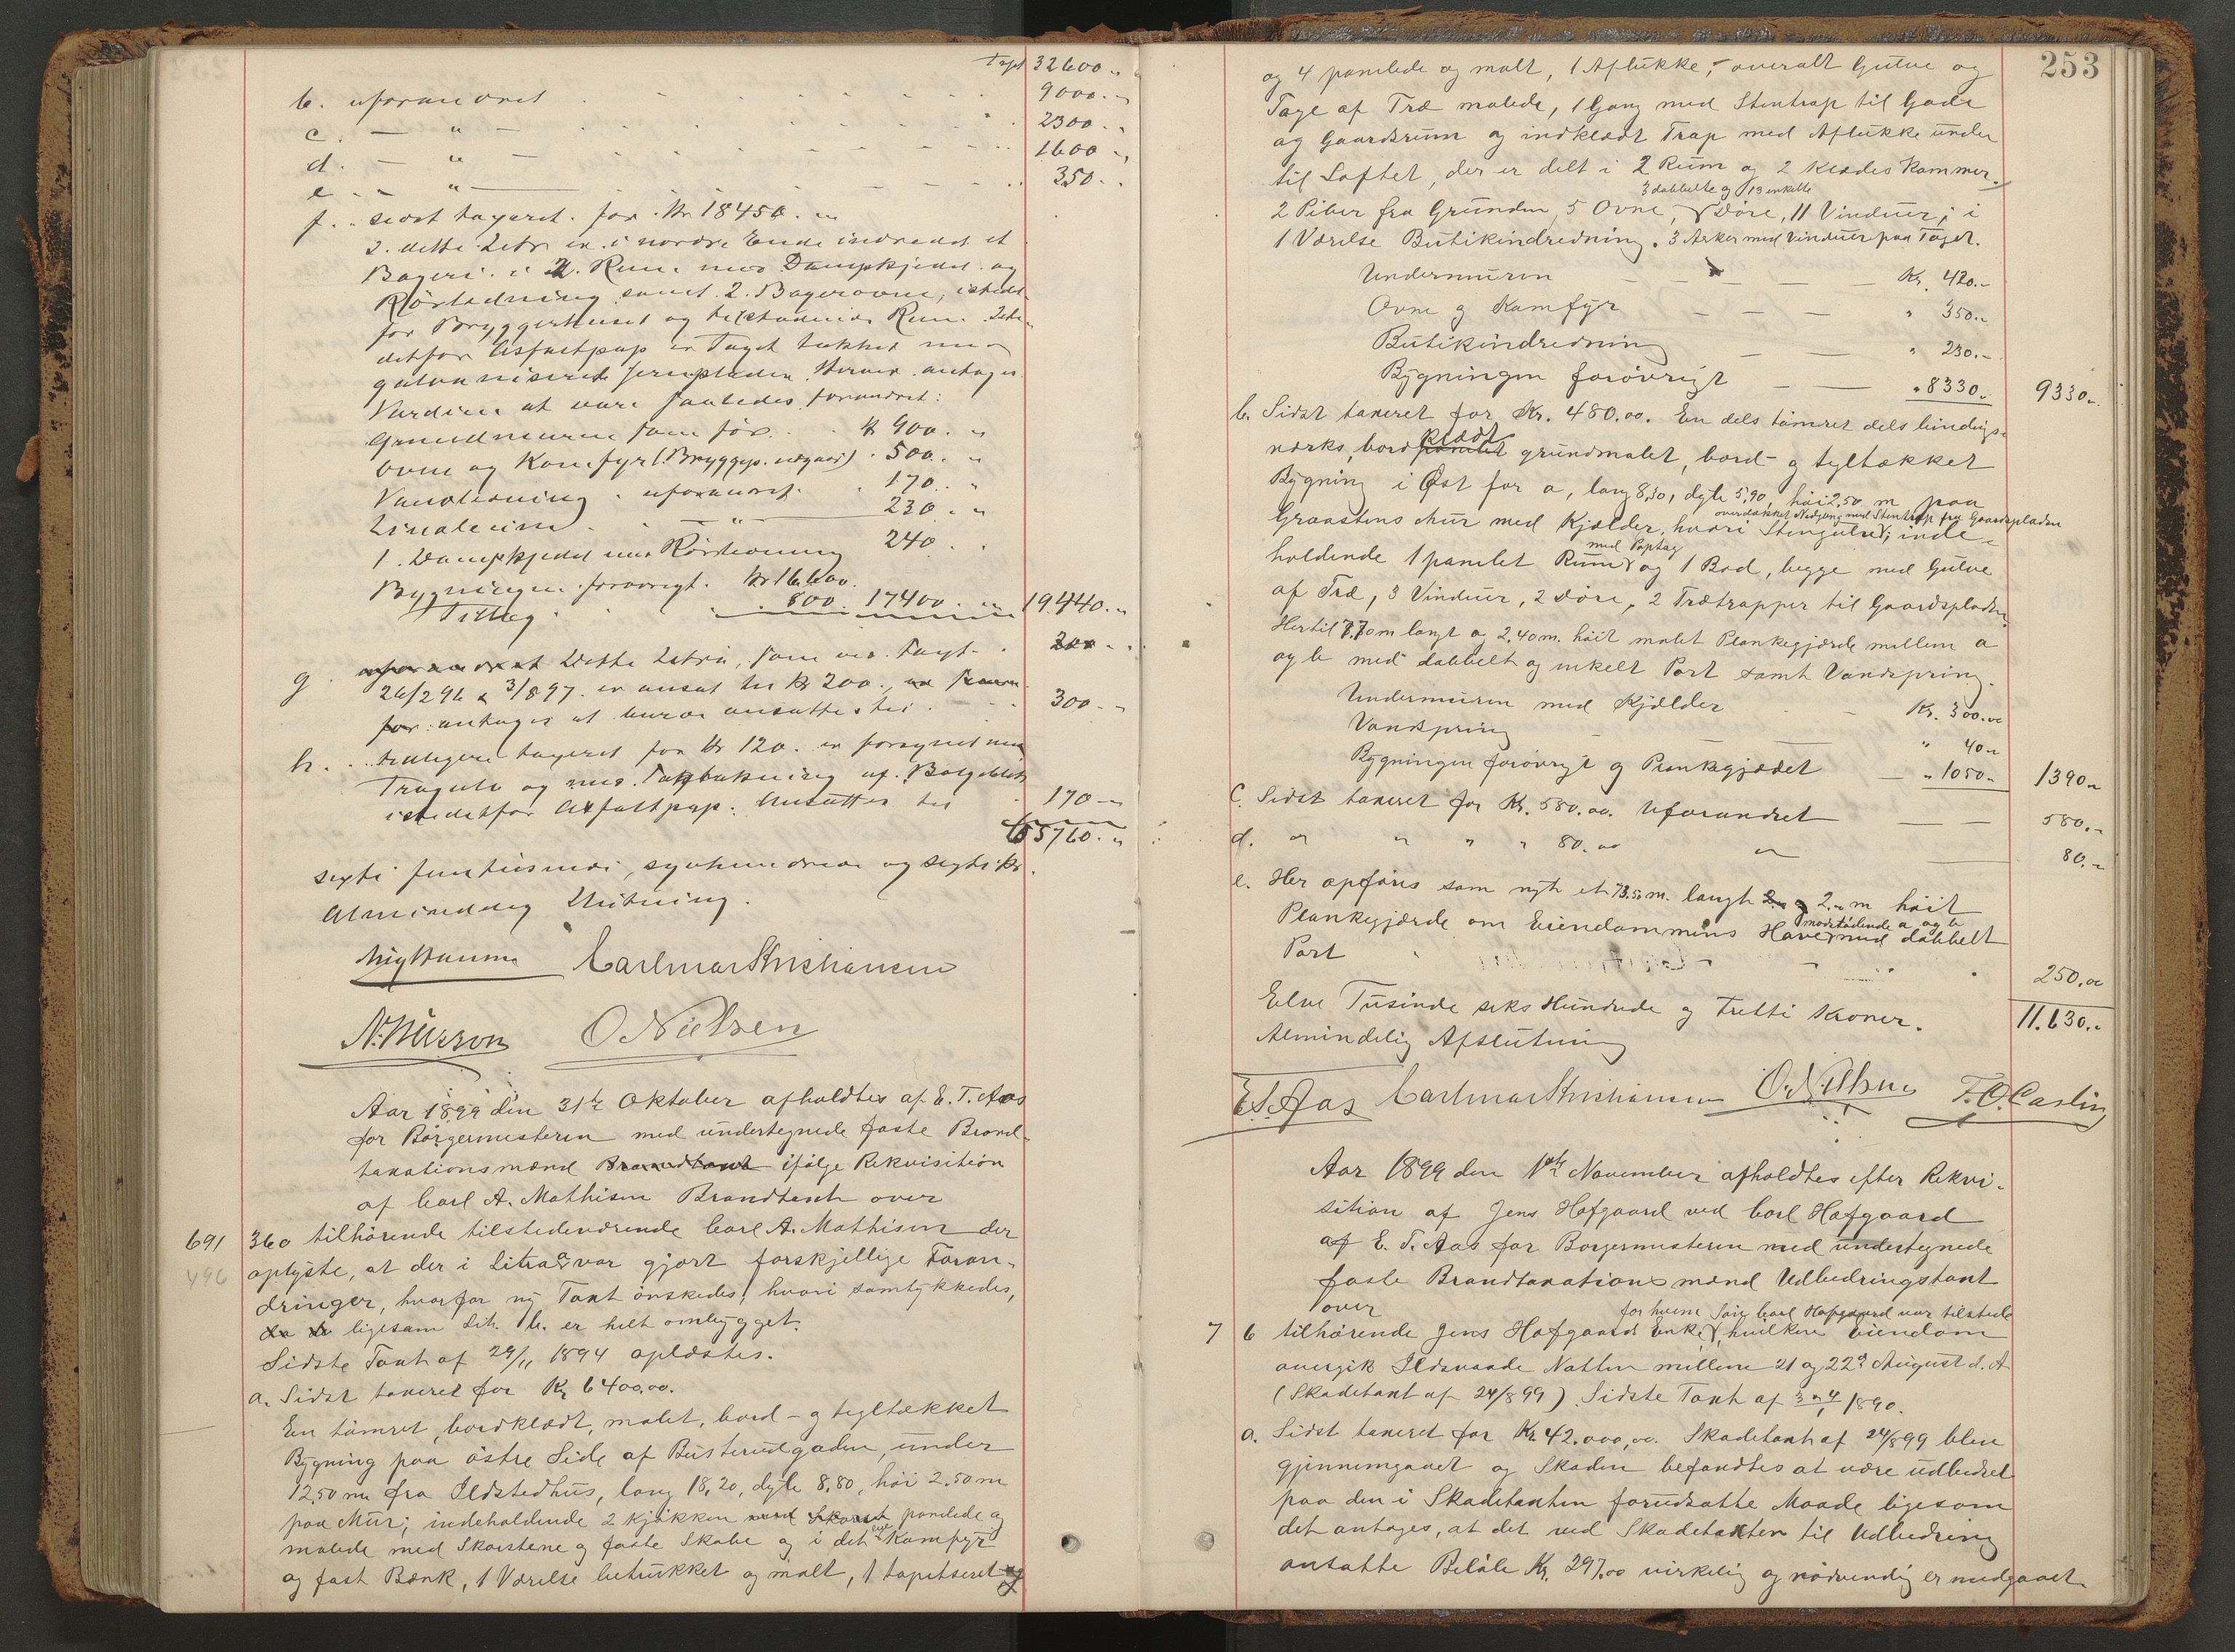 Tpt 32600.-
b. uforandret 9000.-
c. — " — 2300.-
d. — " — 1600.-
e. - " — 350.-
f. sidst taxeret for Kr 18450.-
I dette Litr er i nordre Ende indredet et
Bageri i 2 Rum med Dampkjedel og
Rørledning samt 2 Bagerovne, istedet
for Bryggerhuset og tilstødende Rum. Iste-
detfor Asfaltpap er Taget tækket med
galvaniserede Jernplader. Herved antages
Værdien at være saaledes forandret:
Grundmuren som før Kr 900.-
Ovne og Komfyr (Bryggep. udgaar) 500.-
Vandledning uforandret 170.-
Linoleum — " — 230.-
1 Dampkjedel med Rørledning 240.-
Bygningen forøvrigt Kr 16600.
Tillæg 800. 17400.- 19.440.-
g. Dette Litra, som ved Taxt 200.-
26/2 96 & 3/8 97 er ansat til Kr 200.,
antages at burde ansættes til 300.-
h. tidligere taxeret for Kr 120. er forsynet med
Trægulv og med Tagtækning af Bølgeblik
istedetfor Asfaltpap. Ansættes til 170.-
65760.-
Almindelig Slutning.
Carlmar Christiansen
O Nielsen
Aar 1899 den 31te Oktober afholdtes af E. T. Aas
for Borgermesteren med undertegnede faste Brand-
taxationsmænd ifølge Rekvisition
af Carl A. Mathisen Brandtaxt over
691 360 tilhørende tilstedeværende Carl A. Mathisen der
496 oplyste, at der i Litra a var gjort forskjellige Foran-
dringer, hvorfor ny Taxt ønskedes, hvori samtykkedes,
ligesom Litr. b. er helt ombygget.
Sidste Taxt af 29/11 1894 oplæstes.
a. Sidst taxeret for Kr 6400,00.
En tømret, bordklædt, malet, bord- og tegltækket
Bygning paa østre Side af Busterudgaden, under
12,50 m fra Ildstedhus, lang 18,20, dyb 8,80, høi 2.50 m
paa Mur; indeholdende 2 Kjøkken panelede og
malede med Skorstene og faste Skabe og i det ene Komfyr
og fast Bænk, 1 Værelse betrukket og malt, 1 tapetseret
253
og 4 panelede og malt, 1 Aflukke, overalt Gulve og
Tage af Træ malede, 1 Gang med Stentrap til Gade
og Gaardsrum og indklædt Trap med Aflukke under
til Loftet, der er delt i 2 Rum og 2 Klædes Kammer.
3 dobbelte og 13 enkelte
2 Piber fra Grunden, 5 Ovne, Døre, 11 Vinduer; i
1 Værelse Butikindredning. 3 Arker med Vinduer paa Taget.
Undermuren — Kr. 420.-
Ovne og Komfyr — " 350.-
Butikindredning — " 230.-
Bygningen forøvrigt — " 8330.- 9330.-
b. Sidst taxeret for Kr. 480.00. En dels tømret dels bindings-
værks, bordklædt grundmalet, bord- og tegltækket
Bygning i Øst for a, lang 8,30, dyb 5,90, høi 2,50 m paa
overdækket Nedgang med Stentrap fra Gaardspladsen
Graastens Mur med Kjælder, hvori Stengulve; inde-
med Paptag
holdende 1 panelet Rum og 1 Bod, begge med Gulve
af Træ, 3 Vinduer, 2 Døre, 2 Trætrapper til Gaardspladsen.
Hertil 7,70 m langt og 2,40 m. høit malet Plankegjærde mellem a
og b med dobbelt og enkelt Port samt Vandspring.
Undermuren med Kjælder — Kr. 300.00
Vandspring — " 40.-
Bygningen forøvrigt og Plankegjærdet — " 1050.- 1390.-
c. Sidst taxeret for Kr. 580.00. Uforandret — 580.-
d. " " " " 80.00 " — 80.-
e. Her opføres som nyt et 73.50 m. langt 2.- m høit
modstødende a og b
Plankegjærde om Eiendommens Have med dobbelt
Port 250.00
Elve Tusinde seks Hundrede og Tretti Kroner. 11.630.-
Almindelig Afslutning
E.T. Aas Carlmar Christiansen O. Nielsen T.O. Carlin
Aar 1899 den 1ste November afholdtes efter Rekvi-
sition af Jens Hofgaard ved Carl Hofgaard
af E. T. Aas for Borgermesteren med undertegnede
faste Brandtaxationsmænd Udbedringstaxt
over
for hvem Søn Carl Hofgaard var tilstede
7 6 tilhørende Jens Hofgaards Enke, hvilken Eiendom
overgik Ildsvaade Natten mellem 21 og 22de August d. A
(Skadetaxt af 24/8 99). Sidste Taxt af 3 og 4/1 1890.
a. Sidst taxeret for Kr. 42.000,00. Skadetaxt af 24/8 99 blev
gjennemgaaet og Skaden befandtes at være udbedret
paa den i Skadetaxten forudsatte Maade ligesom
det antages, at det ved Skadetaxten til Udbedring
ansatte Beløb Kr. 297.00 virkelig og nødvendig er medgaaet.